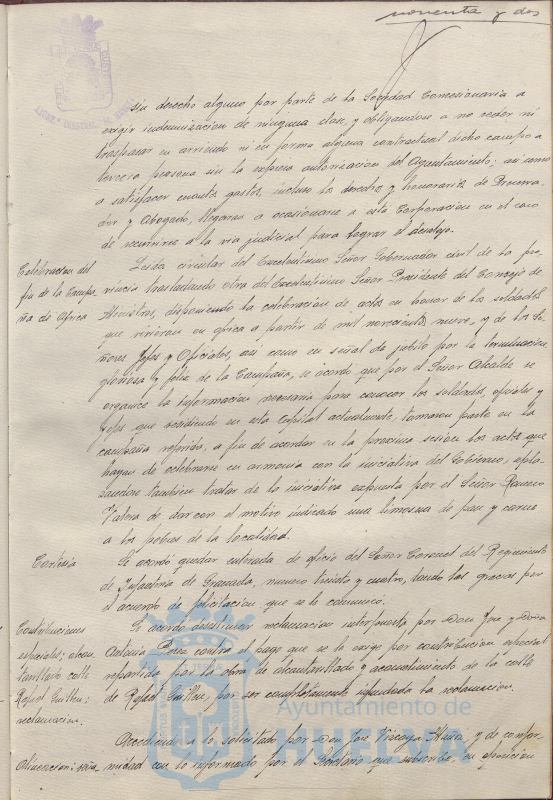 noventa y dos
sin derecho alguno por parte de la Sociedad Concesionaria a
exigir indemnizacion de ninguna clase, y obligandose a no ceder ni
traspasar en arriendo ni en forma alguna contractual dicho campo a
tercera persona sin la expresa autorizacion del Ayuntamiento; asi como
a satisfacer cuantos gastos, incluso los derechos y honorarios de Procura-
dor y Abogado, llegaran a ocasionarse a esta Corporacion en el caso
de recurrirse a la via judicial para lograr el desalojo.
Celebracion del
fin de la Campa-
ña de Africa
Leida circular del Excelentisimo Señor Gobernador civil de la pro-
vincia trasladando otra del Excelentisimo Señor Presidente del Consejo de
Ministros, disponiendo la celebracion de actos en honor de los soldados
que sirvieron en africa a partir de mil novecientos nueve, y de los Se-
ñores Jefes y Oficiales, asi como en señal de jubilo por la terminacion
gloriosa y feliz de la Campaña, se acordó que por el Señor Alcalde se
organice la informacion necesaria para conocer los soldados, oficiales y
Jefes que residiendo en esta capital actualmente, tomaron parte en la
campaña referida, a fin de acordar en la proxima sesion los actos que
hayan de celebrarse en armonia con la iniciativa del Gobierno, apla-
zandose tambien tratar de la iniciativa expuesta por el Señor Romero
Valera de dar con el motivo indicado una limosna de pan y carne
a los pobres de la localidad.
Cortesia
Se acordó quedar enterada de oficio del Señor Coronel del Regimiento
de Infanteria de Granada, numero treinta y cuatro, dando las gracias por
el acuerdo de felicitacion que se le comunicó.
Contribuciones
especiales; alcan-
tarillado calle
Rafael Guillen:
reclamacion.
Se acordó desestimar reclamacion interpuesta por Don Jose y Doña
Antonia Perez contra el pago que se le exige por contribucion especial
repartida por la obra de alcantarillado y acometimiento de la calle
de Rafael Guillen, por ser completamente infundada la reclamacion.
Accediendo a lo solicitado por Don Jose Vizcaya y de confor-
midad con lo informado por el Secretario que suscribe, en oposicion
Ayuntamiento de
HUELVA